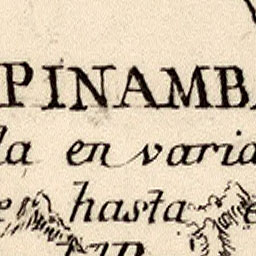 PINAMB
la en varia
e hasta e